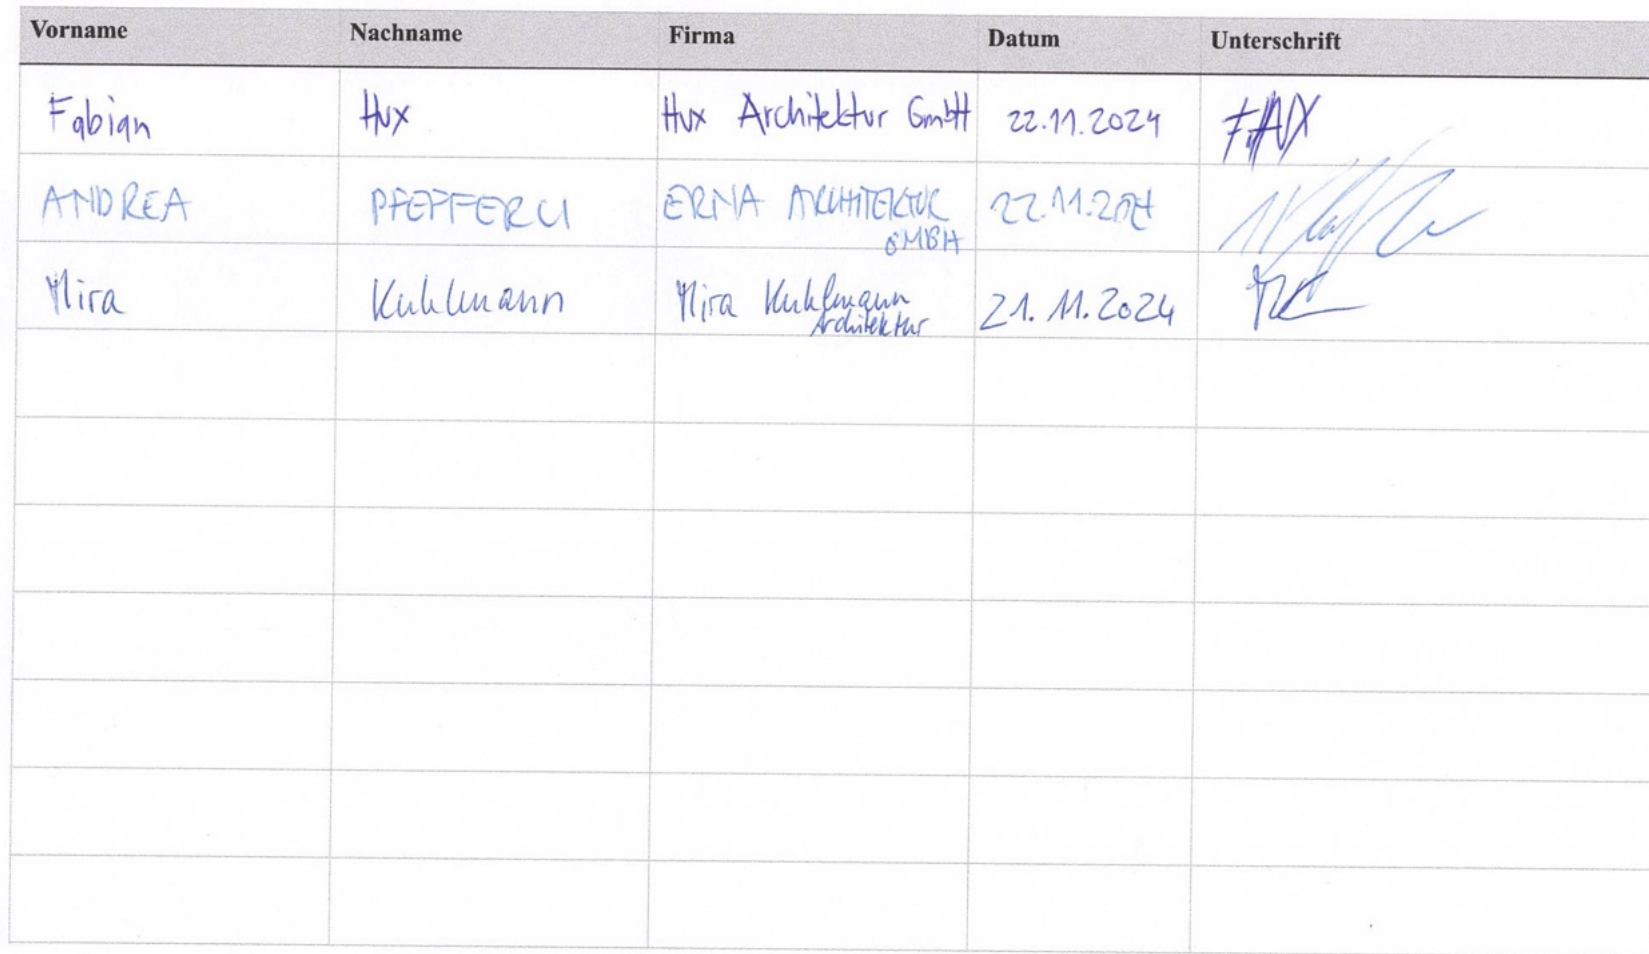 Vorname Nachname Firma Datum Unterschrift
Fabian Hux Hux Architektur GmbH 22.11.2024 F.HUX
ANDREA PFEFFERLI ERNA ARCHITEKTUR 22.11.2024
GMBH
Mira Kuhlmann Mira Kuhlmann 21.11.2024
Architektur